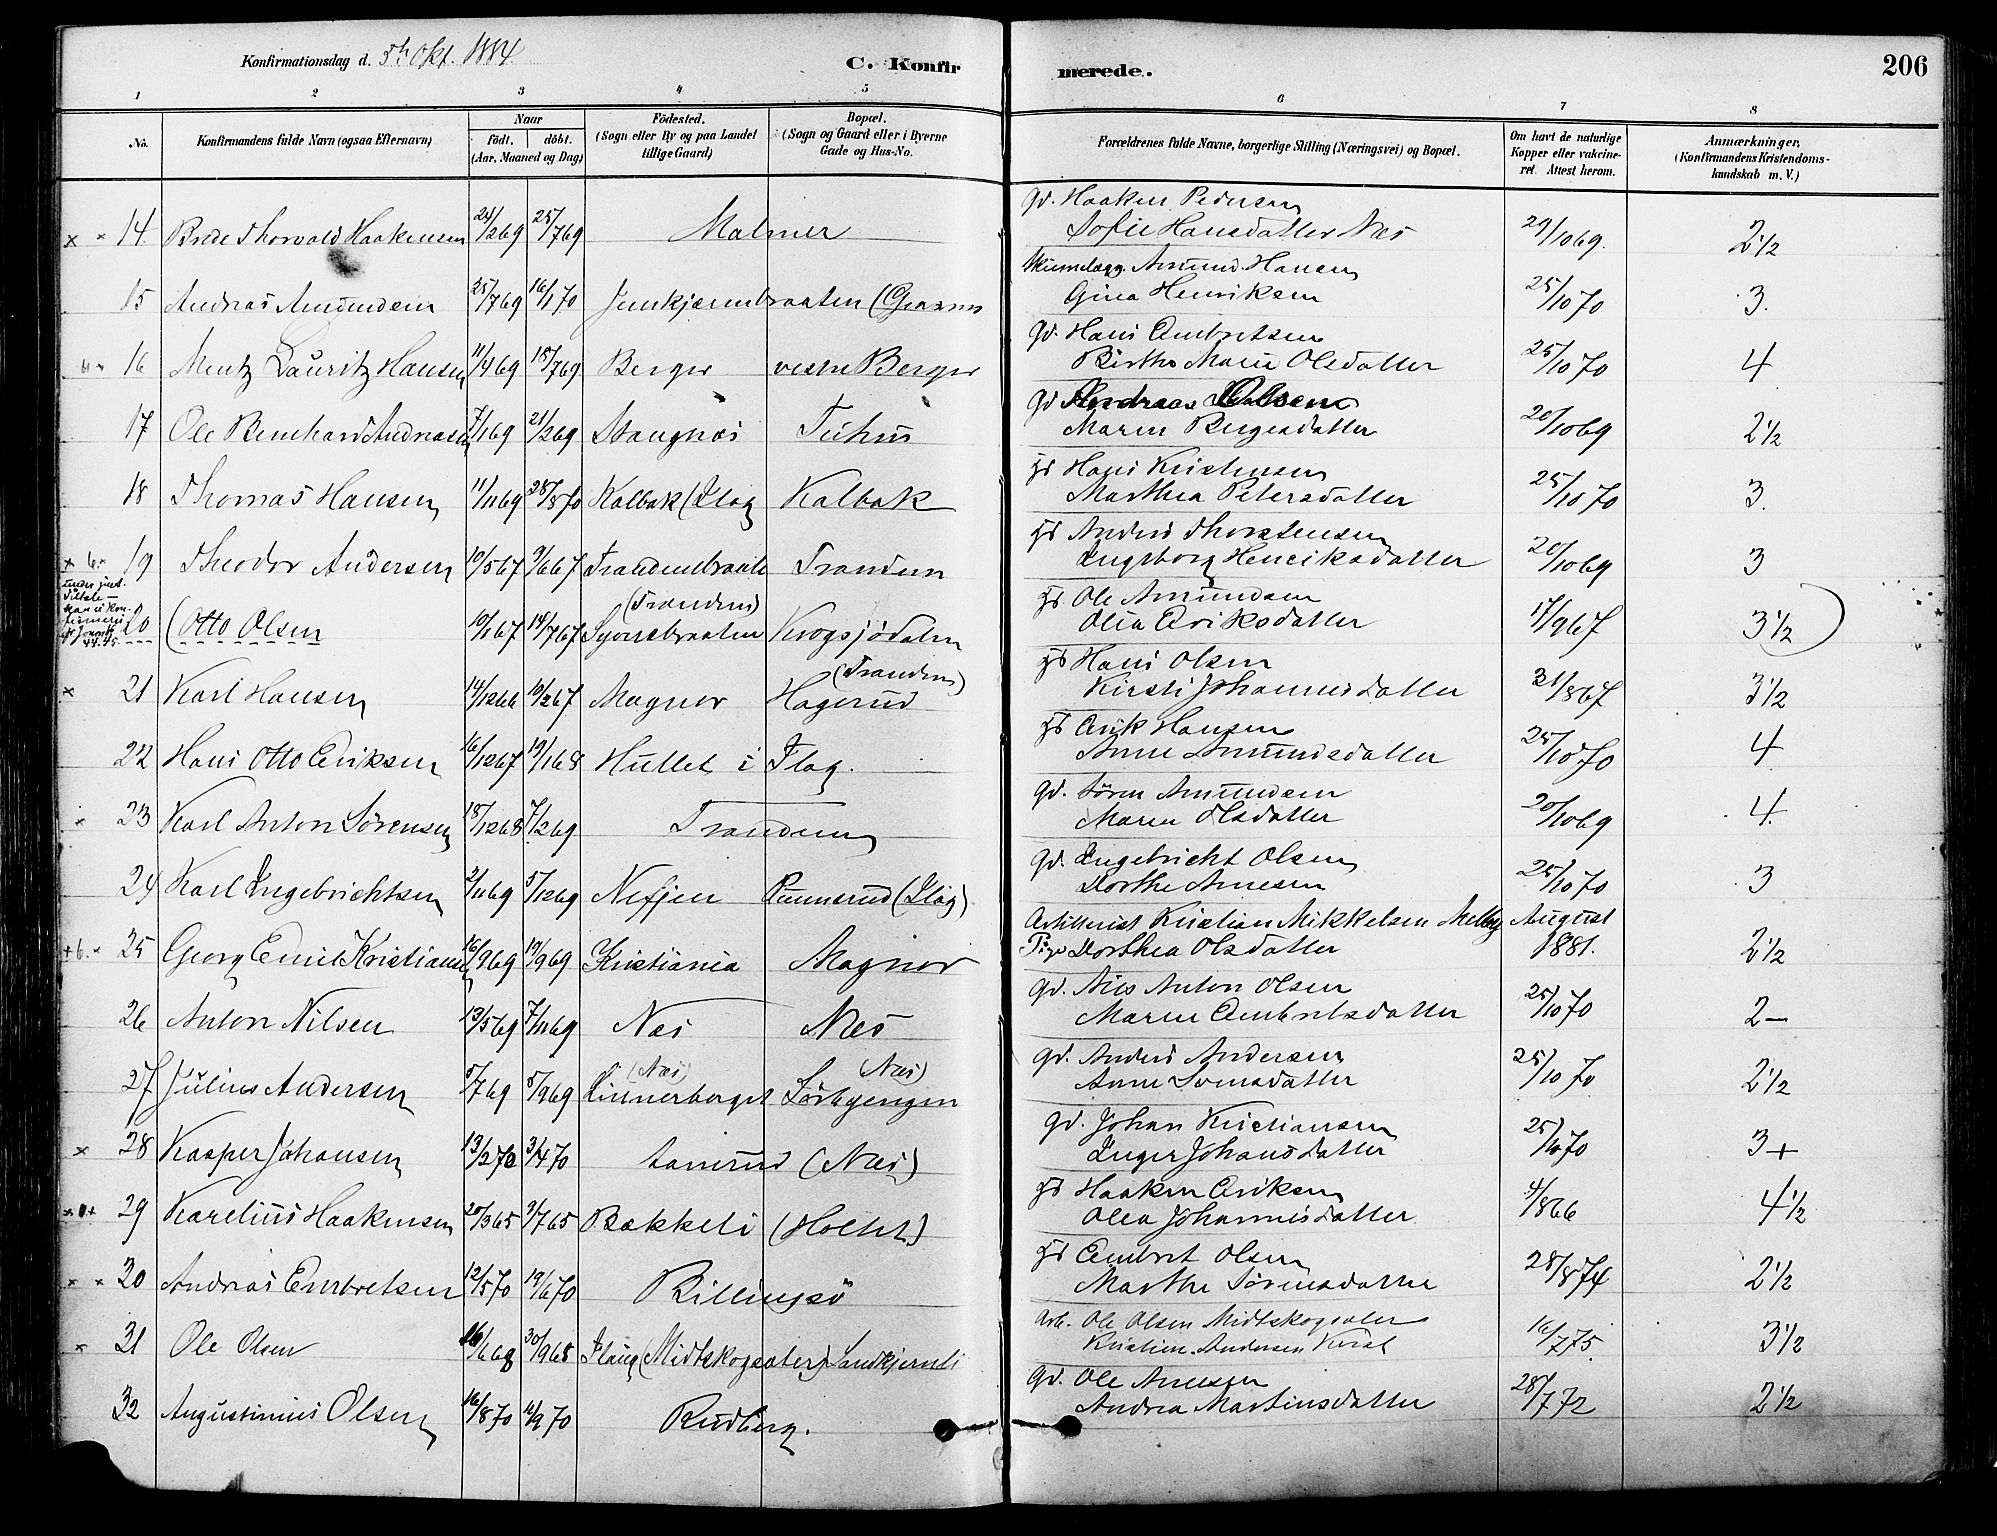 Konfirmationsdag d. 5te Okt. 1884.
C. Konfir
merede.
206
1 2 3 4 5 6 7 8
No. Konfirmandens fulde Navn (ogsaa Efternavn) Naar födt. döbt. (Aar, Maaned og Dag) Födested. (Sogn eller By og paa Landet tillige Gaard) Bopæl. (Sogn og Gaard eller i Byerne Gade og Hus-No. Forældrenes fulde Navne, borgerlige Stilling (Næringsvei) og Bopæl. Om havt de naturlige Kopper eller vakcineret. Attest herom. Anmærkninger, (Konfirmandens Kristendomskundskab m. V.)
Gd. Haaken Pedersen
14. Brede Thorvald Haakensen 24/2 69 25/7 69 Malmer Sofie Hansdatter Næs 29/10 69. 2 1/2
Amund Hansen
15 Andreas Amundsen 25/7 69 16/1 70 Gina Henriksen 25/10 70 3.
Gd. Hans Embretsen
16 Mentz Lauritz Hansen 11/4 69 18/7 69 Berger vestre Berger Birthe Marie Olsdatter 25/10 70 4
Gd Andreas Olsen
17 Ole Bernhard Andreasen 7/1 69 21/2 69 Stangnæs Maren Birgesdatter 20/10 69 2 1/2
Hans Kristensen
18 Thomas Hansen 11/11 69 28/8 70 Kalbak (Flog Kalbak Marthea Petersdatter 25/10 70 3.
Anders Thorstensen
x 6 x 19 Theodor Andersen 10/5 67 9/6 67 Trandum Ingeborg Henriksdatter 20/10 69 3
(Trandum) Ole Amundsen
20 (Otto Olsen 10/1 67 14/7 67 Krogsjödalen Olia Eriksdatter 17/9 67 3 1/2 )
(Trandum) Hans Olsen
x 21 Karl Hansen 14/12 66 10/2 67 Magnor Hagerud Kirsti Johannesdatter 31/8 67 3 1/2
Erik Hansen
22 Hans Otto Eriksen 16/12 67 19/1 68 Hullet i Flog. Anne Amundsdatter 25/10 70 4
Gd. Sören Amundsen
23 Karl Anton Sörensen 18/12 68 7/2 69 Trandum Maren Olsdatter 20/10 69 4.
Gd. Ingebricht Olsen
24 Karl Ingebrichtsen 2/11 69 5/12 69 Dorthe Arnesen 25/10 70 3
Artillerist Kristian Mikkelsen Melby August
25 Georg Emil Kristiansen 16/9 69 19/9 69 Kristiania Magnor Pige Dorthea Olsdatter 1881. 2 1/2
Gd. Nils Anton Olsen
26 Anton Nilsen 13/5 69 7/11 69 Næs Næs Maren Embretsdatter 25/10 70 2 —
(Næs) (Næs) Gd. Anders Andersen
27 Julius Andersen 5/7 69 5/9 69 Linnerberget Sörbyengen Anne Svensdatter 25/10 70 2 1/2
Gd. Johan Kristiansen
x 28 Kasper Johansen 13/2 70 3/4 70 (Næs) Inger Johansdatter 25/10 70 3+
Haaken Eriksen
29 Karelius Haakensen 20/3 65 9/7 65 Bækkeli (Holter) Olea Johannesdatter 4/8 66 4 1/2
Embret Olsen
x x 30 Andreas Embretsen 12/5 70 19/6 70 Billingsö Marthe Sörensdatter 28/8 74 2 1/2
Arb. Ole Olsen Midtskogsæter
x 31 Ole Olsen 16/6 68 30/9 68 (Midtskogsæter) Sandkjernli Kristine Andersen 16/7 75. 3 1/2
Gd. Ole Arnesen
32 Augustinius Olsen 16/8 70 11/9 70 Rudberg. Andrea Martinsdatter 28/7 72 2 1/2